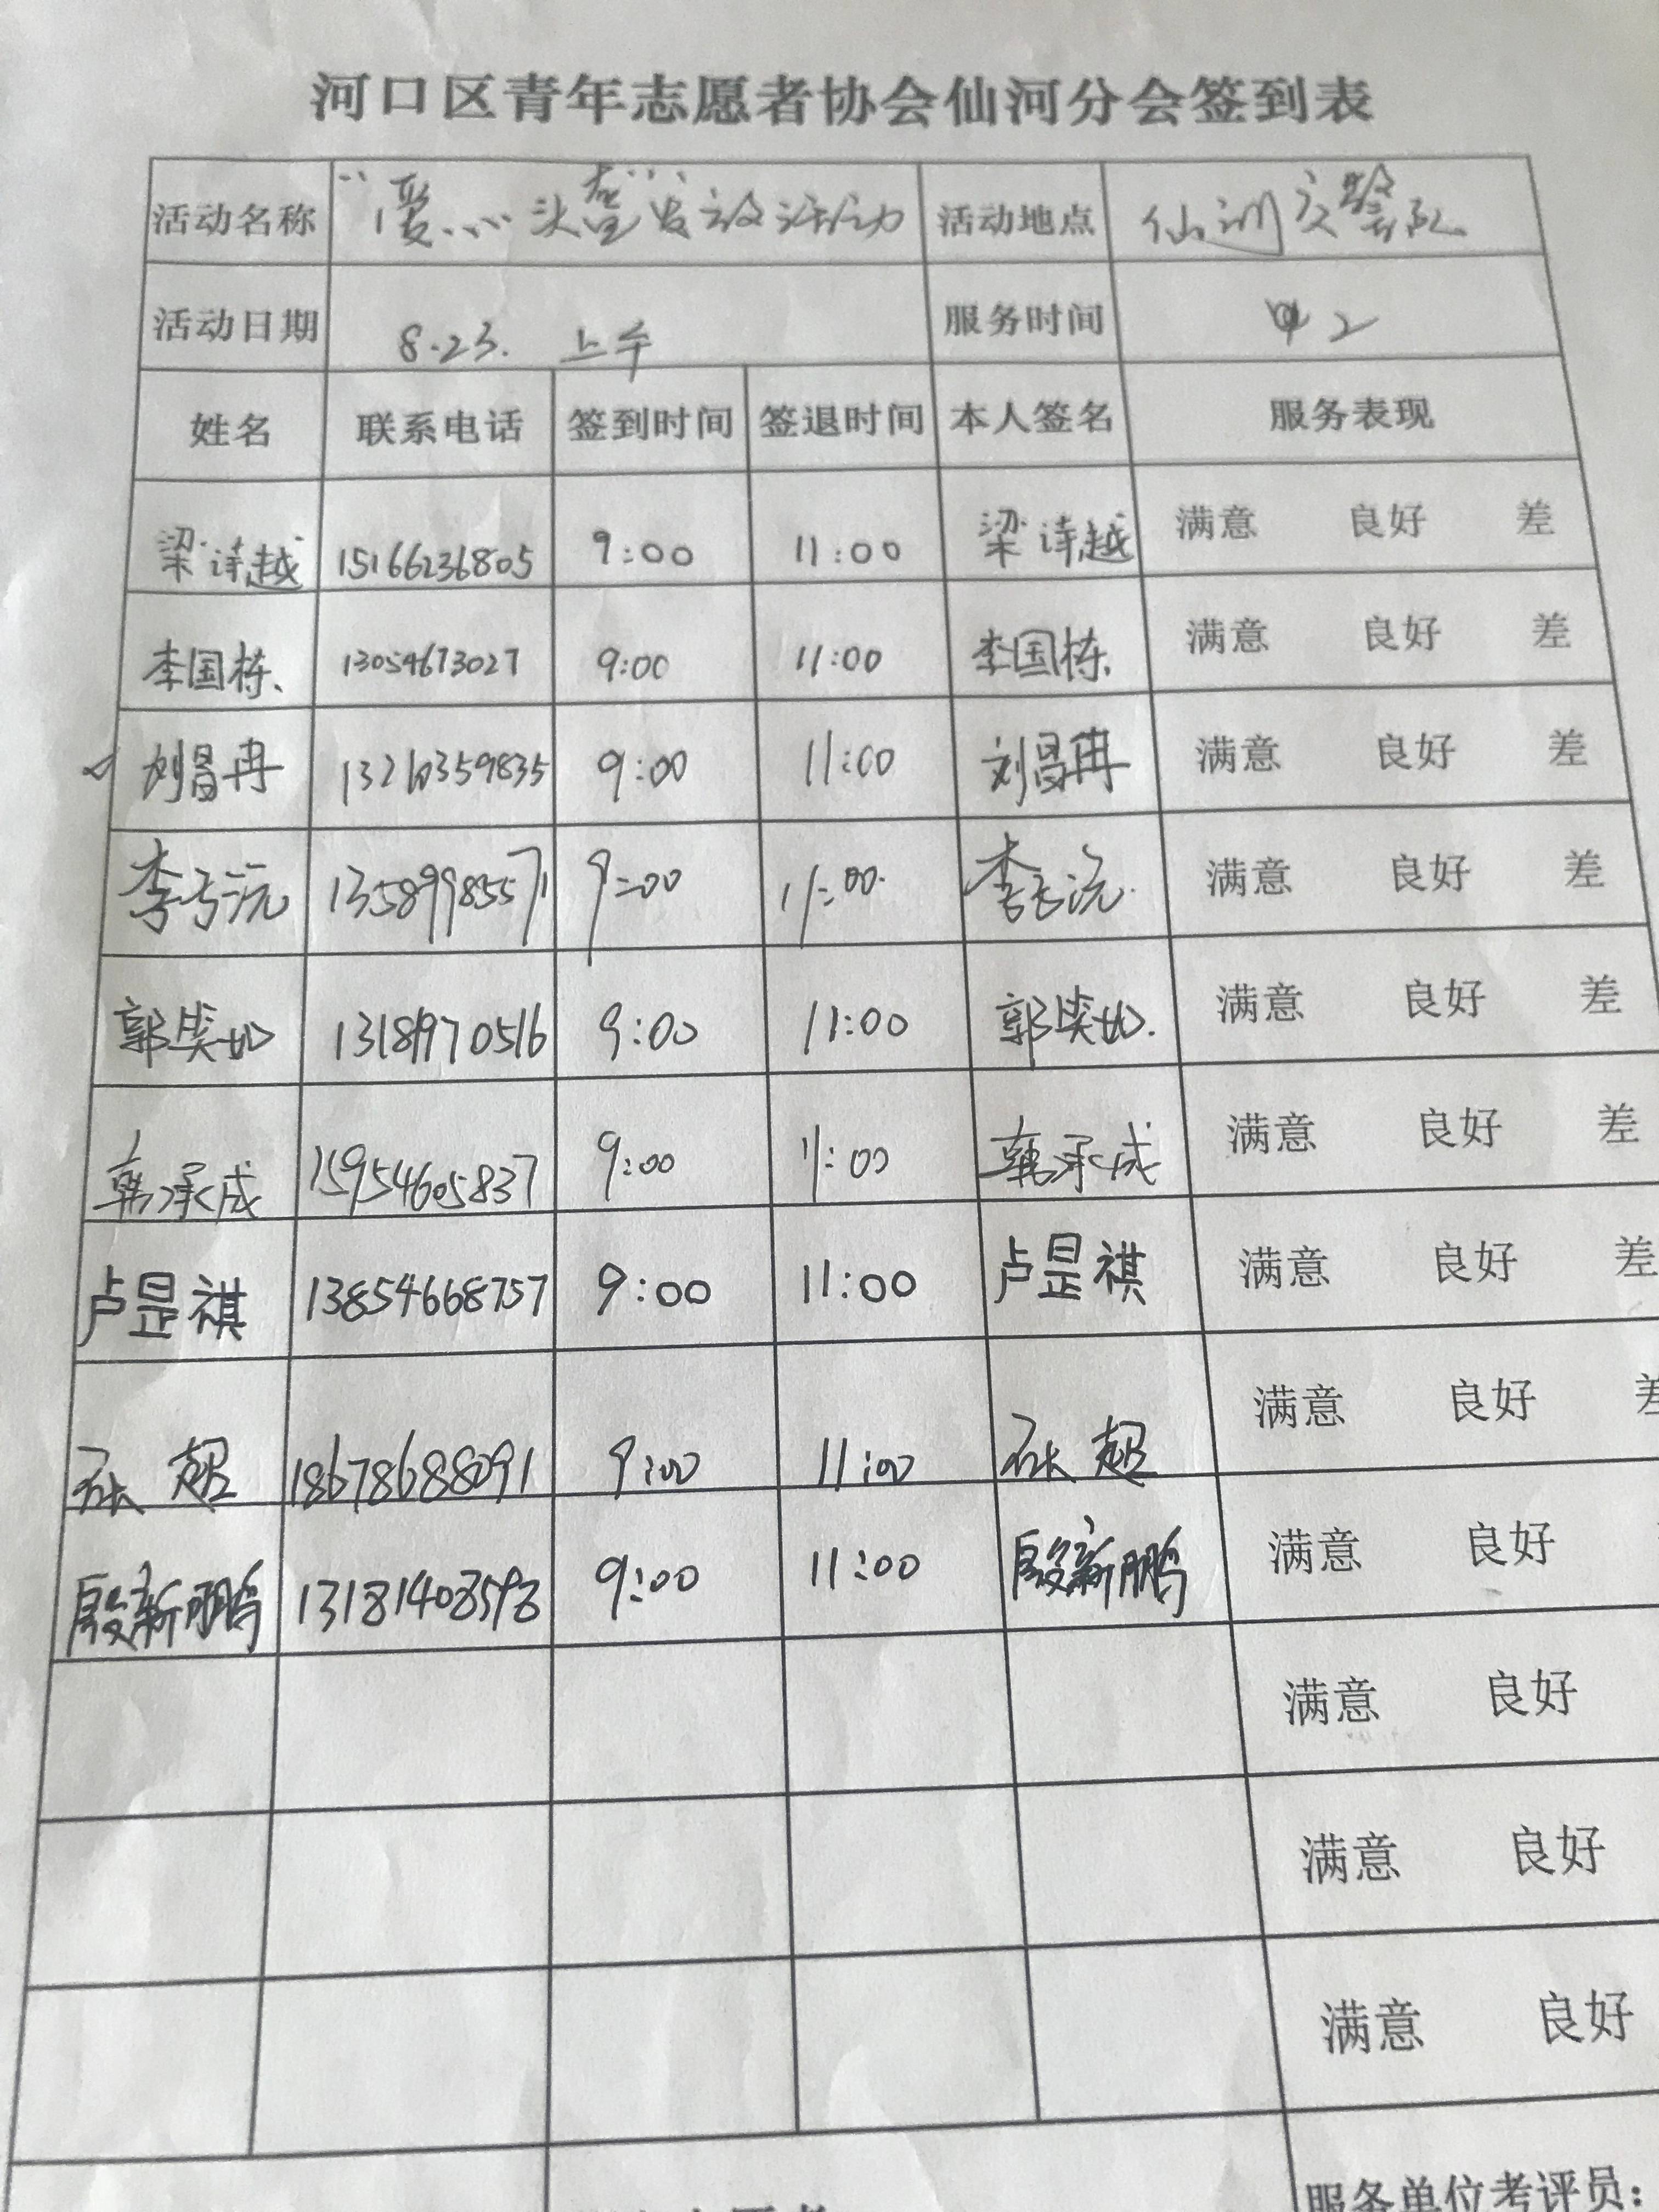 河口区青年志愿者协会仙河分会签到表
活动名称 “爱心头盔”发放活动 活动地点 仙河交警队
活动日期 8.23. 上午 服务时间 2
姓名 联系电话 签到时间 签退时间 本人签名 服务表现
梁诗越 15166236805 9:00 11:00 梁诗越 满意 良好 差
李国栋 13054673027 9:00 11:00 李国栋 满意 良好 差
刘昌冉 13210359835 9:00 11:00 刘昌冉 满意 良好 差
李 13589985571 9:00 11:00 李 满意 良好 差
郭 13181970516 9:00 11:00 郭 满意 良好 差
韩承成 15954605837 9:00 11:00 韩承成 满意 良好 差
卢昰祺 13854668757 9:00 11:00 卢昰祺 满意 良好 差
张超 18678688091 9:00 11:00 张超 满意 良好 差
殷新鹏 13181408593 9:00 11:00 殷新鹏 满意 良好
满意 良好
满意 良好
满意 良好
服务单位考评员：